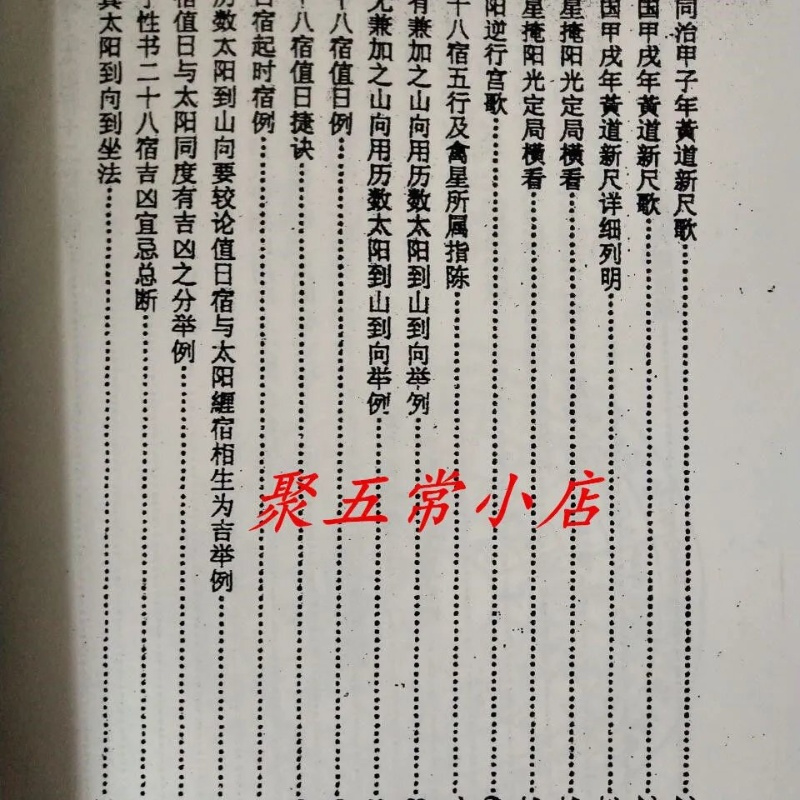 同治甲子年黄道新尺歌
国甲戌年黄道新尺歌
国甲戌年黄道新尺详细列明
星掩阳光定局横看
星掩阳光定局横看
阳逆行宫歌
十八宿五行及禽星所属指陈
有兼加之山向用历数太阳到山到向举例
无兼加之山向用历数太阳到山到向举例
十八宿值日例
十八宿值日捷诀
日宿起时宿例
历数太阳到山向要较论值日宿与太阳缠宿相生为吉举例
宿值日与太阳同度有吉凶之分举例
性书二十八宿吉凶宜忌总断
真太阳到向到坐法
聚五常小店